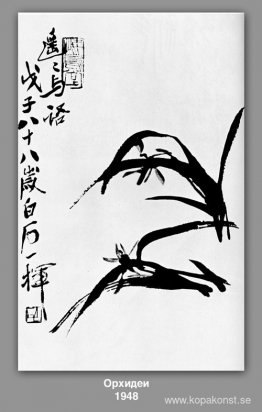 戊子八十八歲白石一揮
Орхидеи
1948
www.kopakonst.se